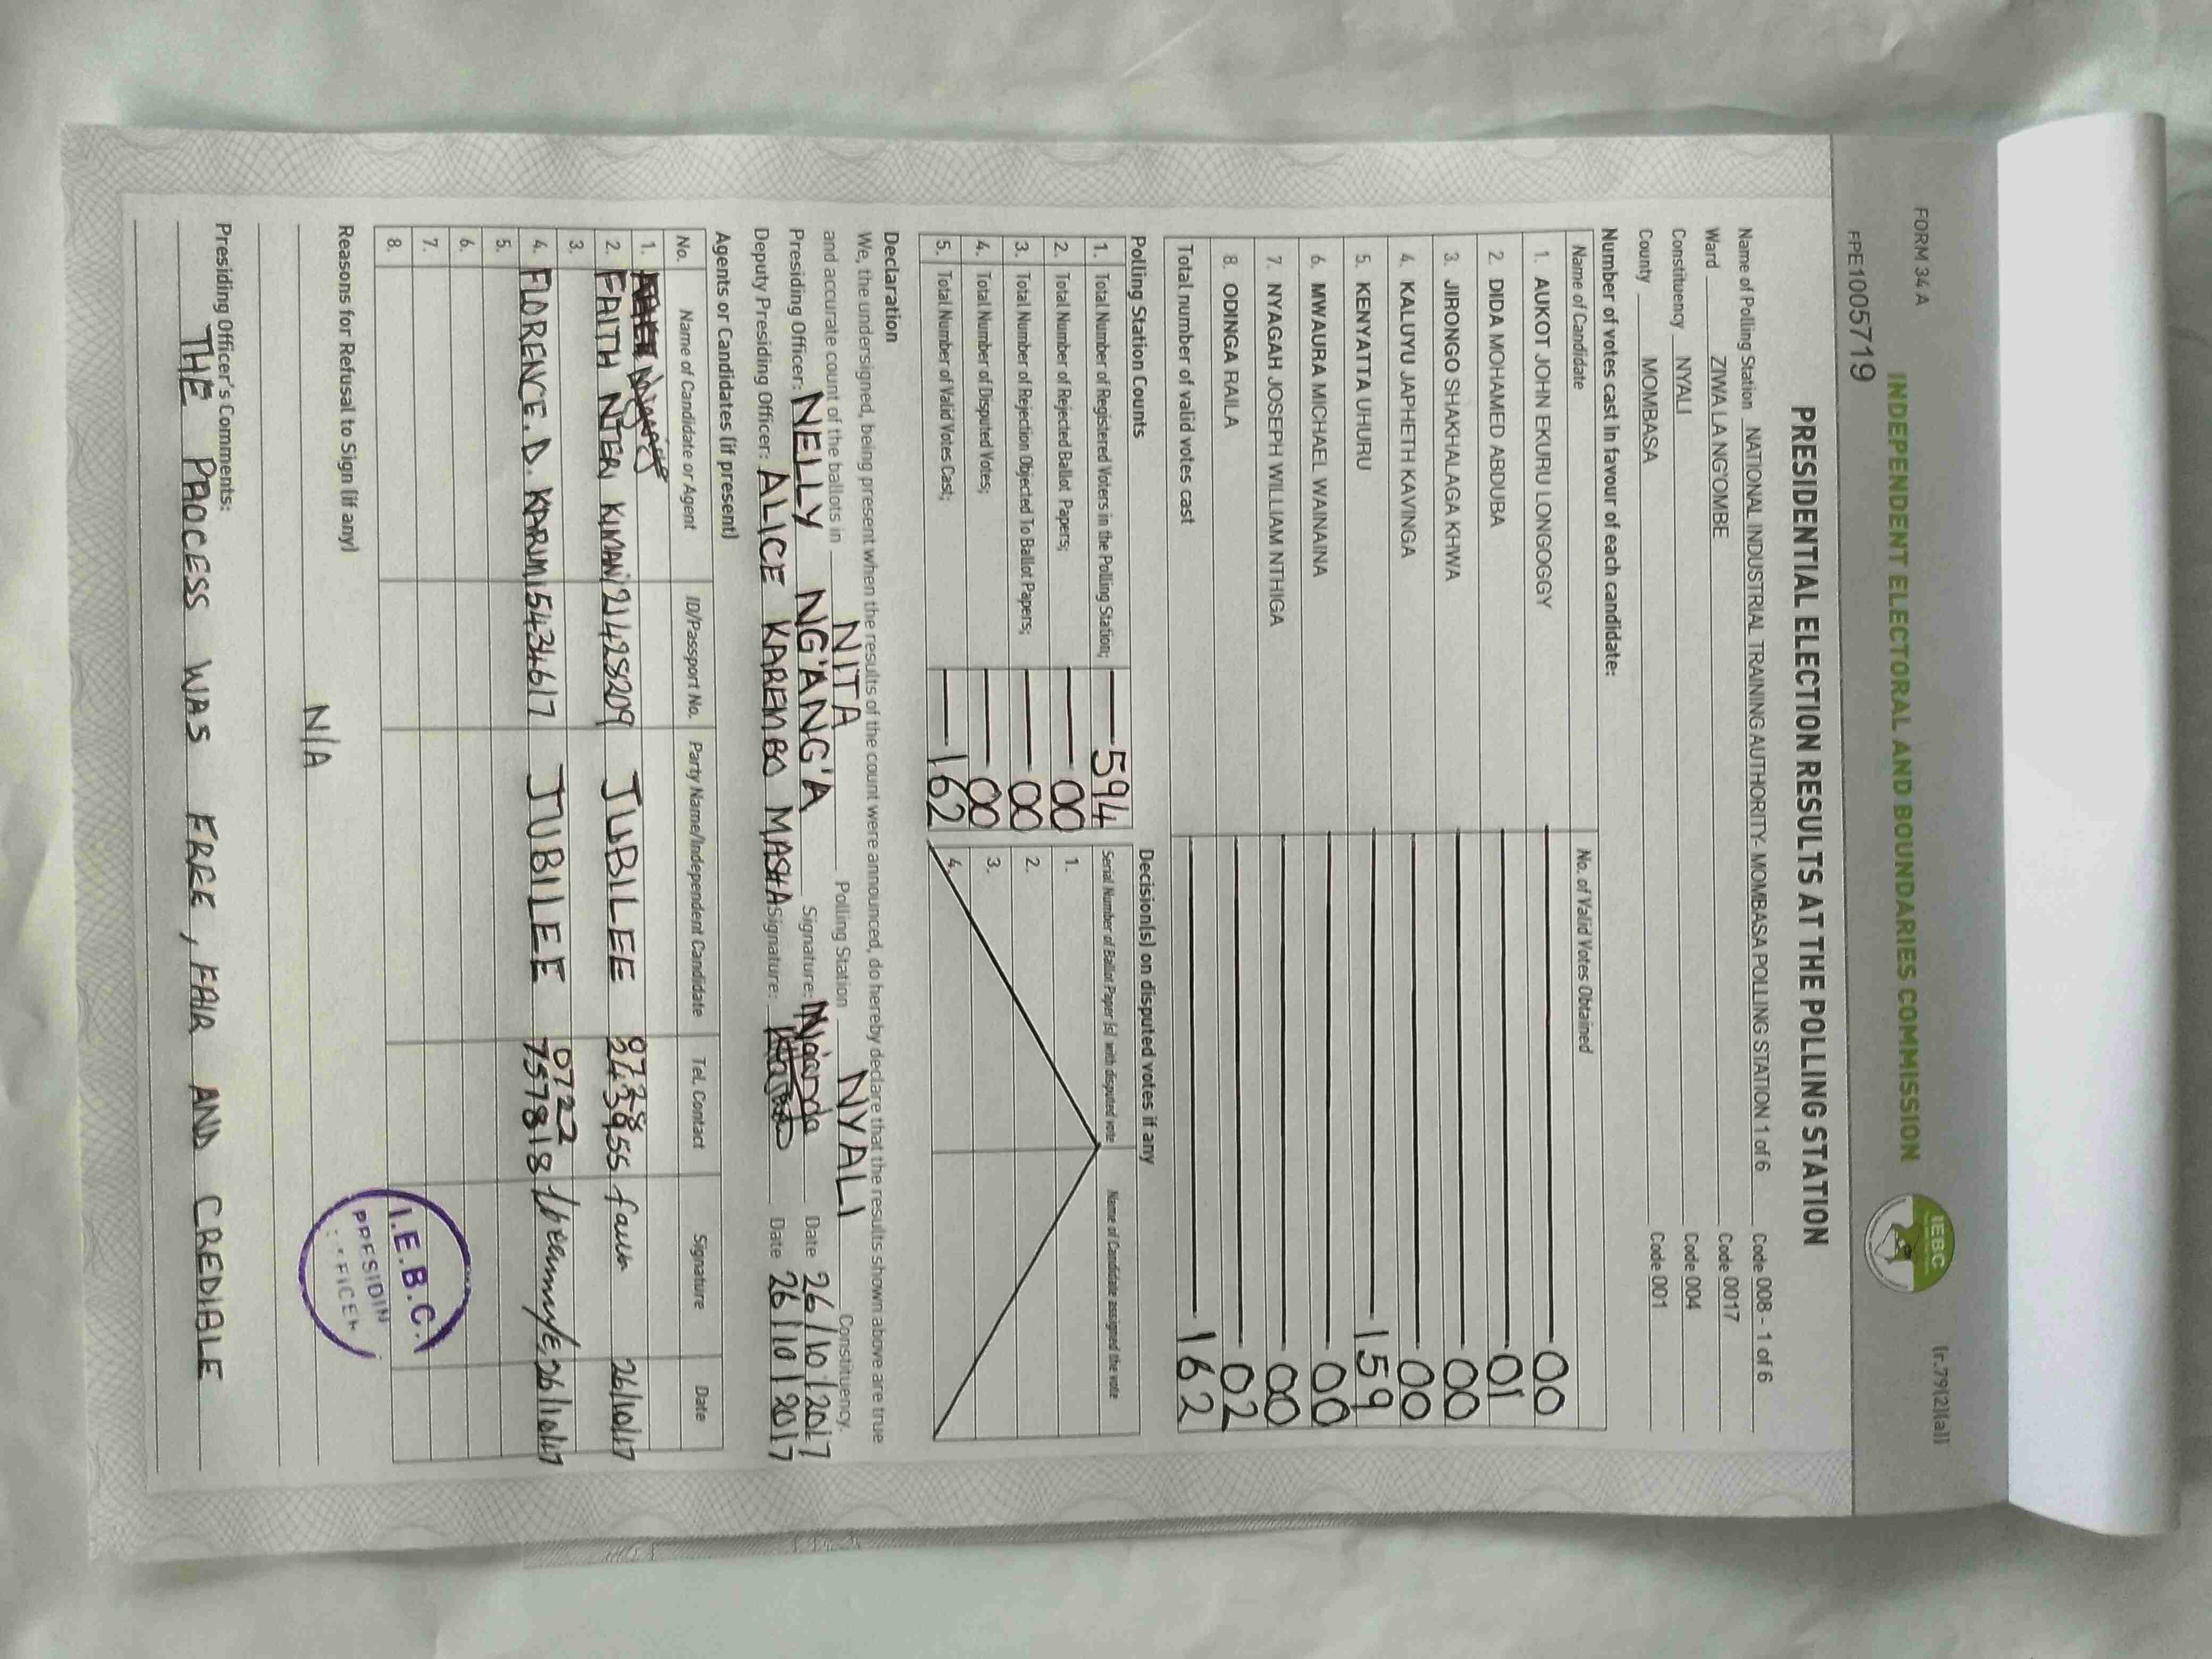 FORM 34 A
(r.79(2)(a))
INDEPENDENT ELECTORAL AND BOUNDARIES COMMISSION
IEBC
FPE1005719
PRESIDENTIAL ELECTION RESULTS AT THE POLLING STATION
Name of Polling Station NATIONAL INDUSTRIAL TRAINING AUTHORITY- MOMBASA POLLING STATION 1 of 6 Code 008 - 1 of 6
Ward ZIWA LA NG'OMBE Code 0017
Constituency NYALI Code 004
County MOMBASA Code 001
Number of votes cast in favour of each candidate:
Name of Candidate No. of Valid Votes Obtained
1. AUKOT JOHN EKURU LONGOGGY 00
2. DIDA MOHAMED ABDUBA 01
3. JIRONGO SHAKHALAGA KHWA 00
4. KALUYU JAPHETH KAVINGA 00
5. KENYATTA UHURU 159
6. MWAURA MICHAEL WAINAINA 00
7. NYAGAH JOSEPH WILLIAM NTHIGA 00
8. ODINGA RAILA 02
Total number of valid votes cast 162
Polling Station Counts Decision(s) on disputed votes if any
1. Total Number of Registered Voters in the Polling Station; 594 Serial Number of Ballot Paper (s) with disputed vote Name of Candidate assigned the vote
2. Total Number of Rejected Ballot Papers; 00 1.
3. Total Number of Rejection Objected To Ballot Papers; 00 2.
4. Total Number of Disputed Votes; 00 3.
5. Total Number of Valid Votes Cast; 162 4.
Declaration
We, the undersigned, being present when the results of the count were announced, do hereby declare that the results shown above are true
and accurate count of the ballots in NITA Polling Station NYALI Constituency.
Presiding Officer: NELLY NG'ANG'A Signature: Date 26/10/2017
Deputy Presiding Officer: ALICE KAREMBO MASHA Signature: Date 26/10/2017
Agents or Candidates (if present)
No. Name of Candidate or Agent ID/Passport No. Party Name/Independent Candidate Tel. Contact Signature Date
1.
2. FAITH NTERI KIMANI 21428209 JUBLEE 26/10/17
3.
4. FLORENCE. D. KARUMI 5434617 JUBILEE 0722 757818 26/10/17
5.
6.
7.
8.
I.E.B.C.
PRESIDIN
Reasons for Refusal to Sign (if any)
N/A
Presiding Officer's Comments:
THE PROCESS WAS FREE, FAIR AND CREDIBLE